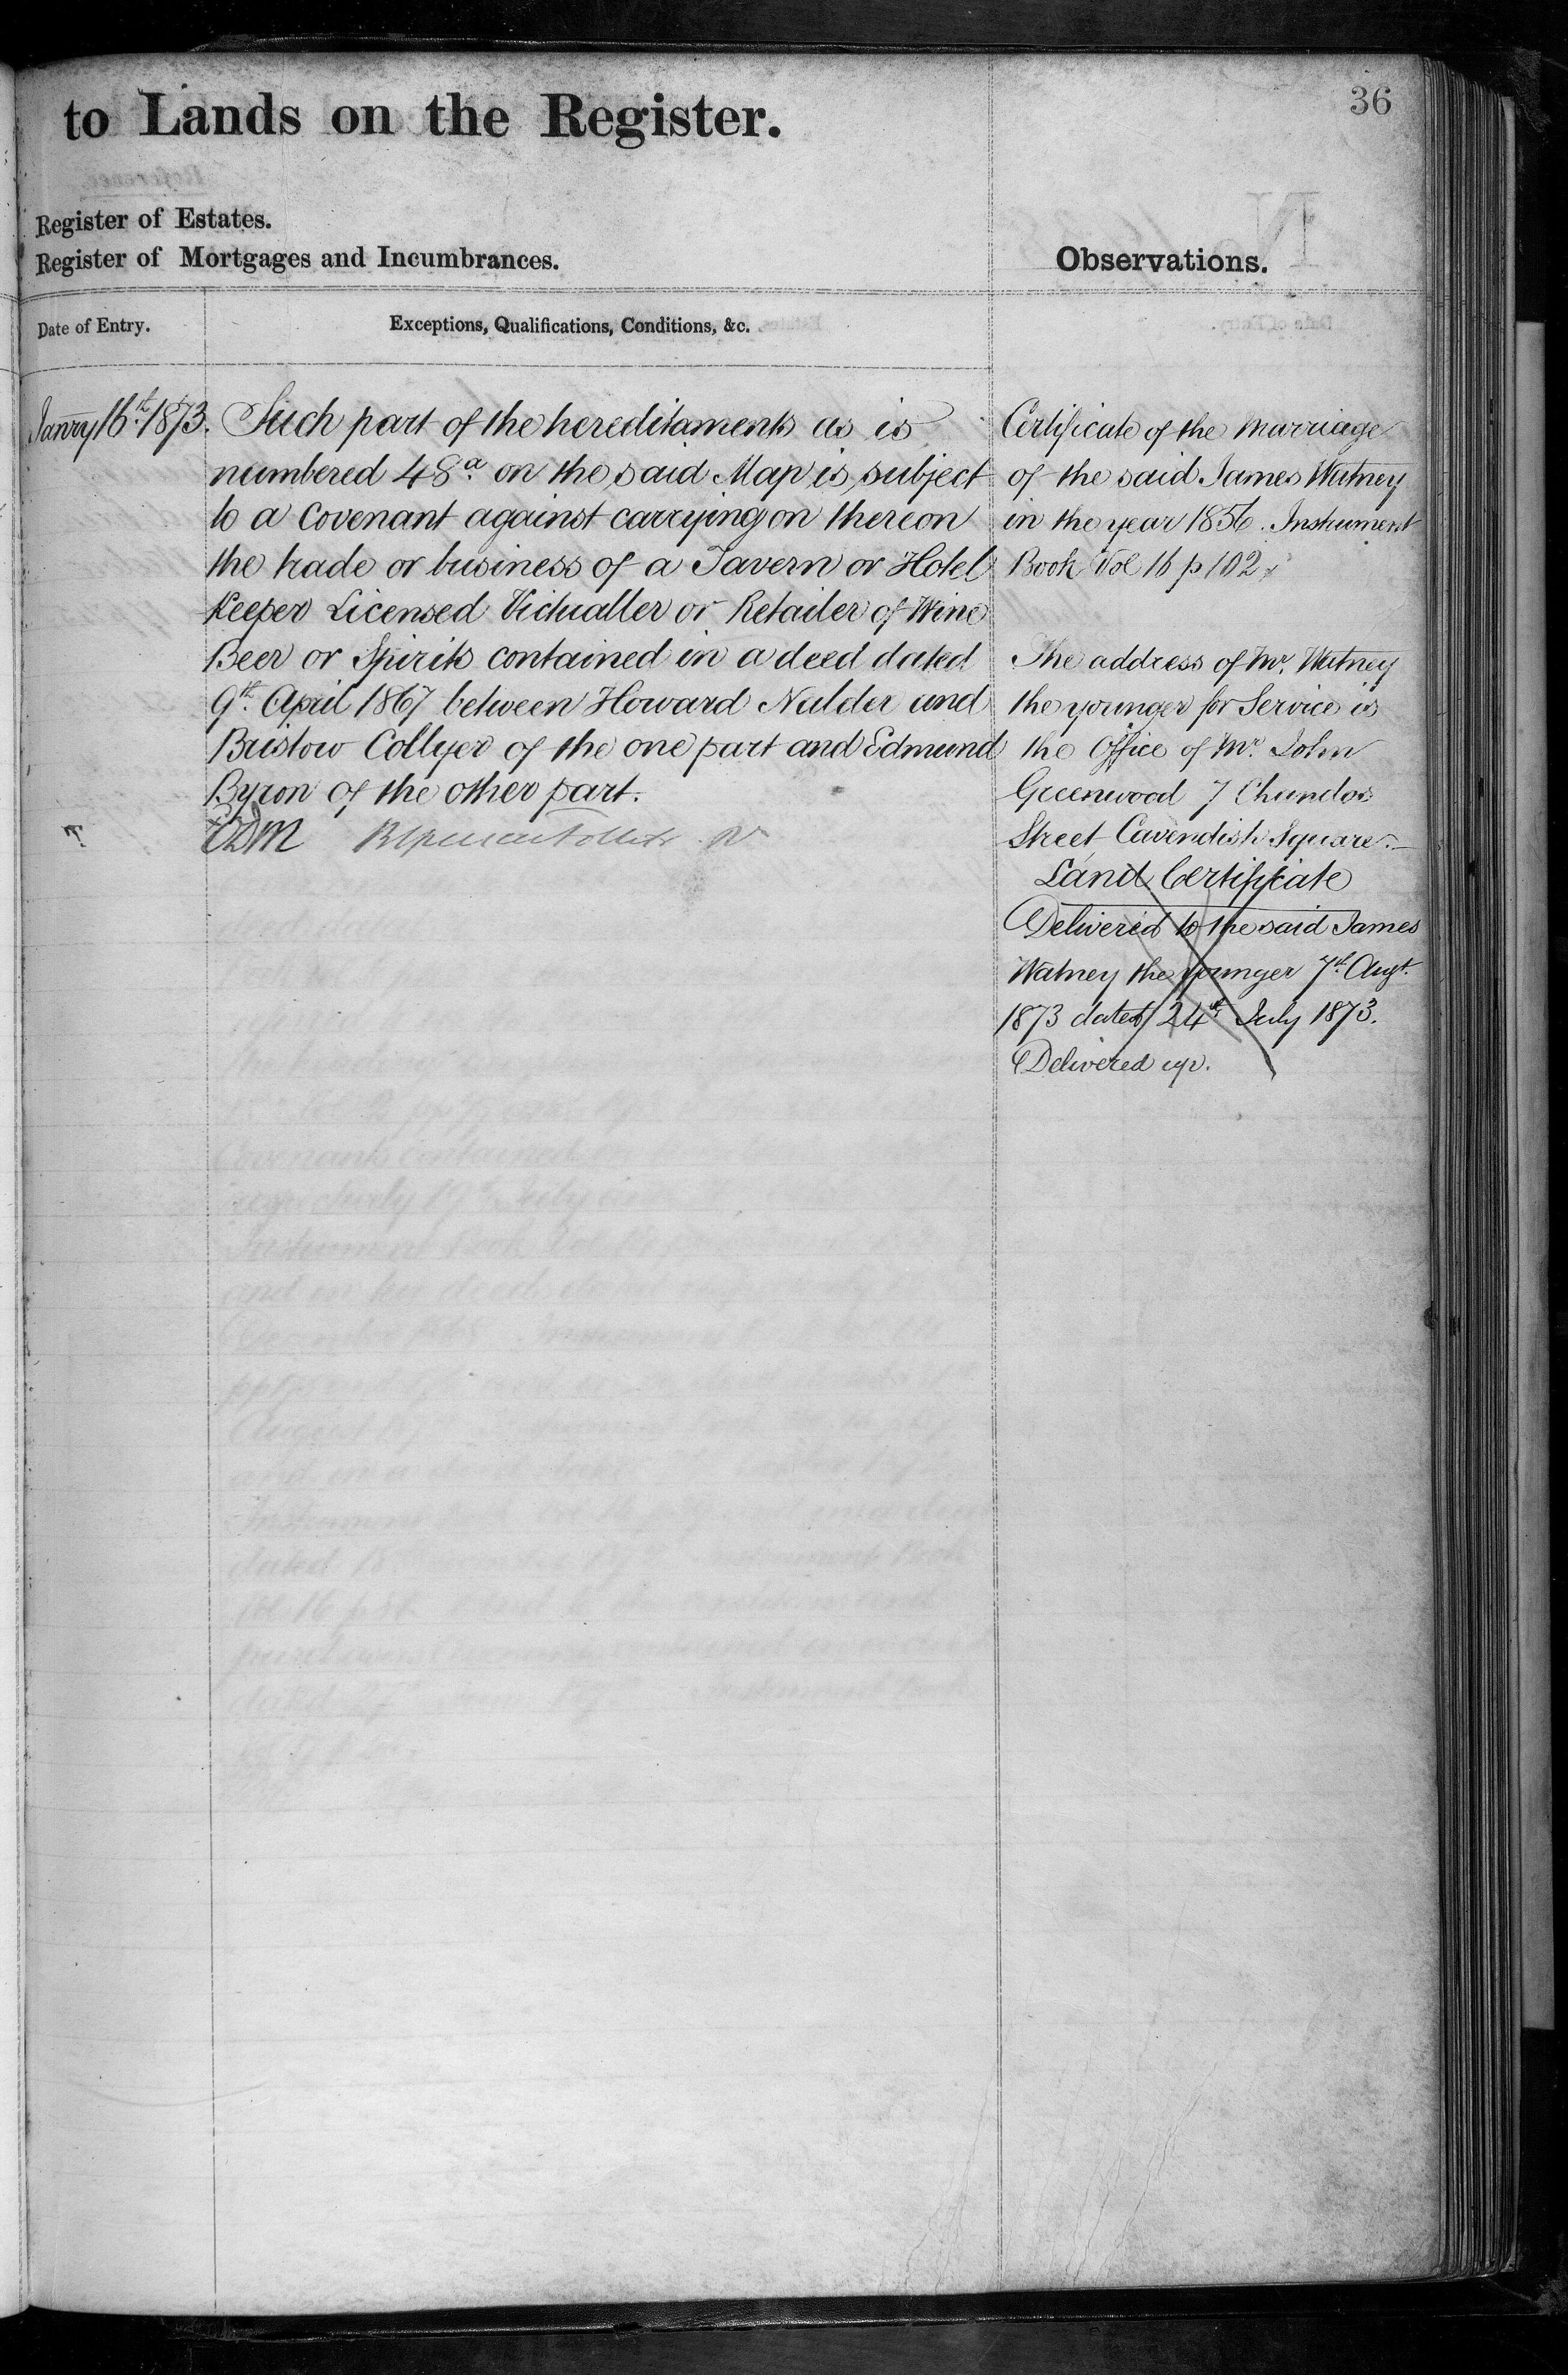 36
to Lands on the Register.
Register of Estates.
Register of Mortgages and Incumbrances.
Observations.
Date of Entry.
Exceptions, Qualifications, Conditions, &c.
Janry 16th 1873.
Such part of the hereditaments as is
numbered 48a on the said Map is subject
to a covenant against carrying on thereon
the trade or business of a Tavern or Hotel
Keeper Licensed Victualler or Retailer of Wine
Beer or Spirits contained in a deed dated
9th April 1867 between Howard Nalder and
Bristow Collyer of the one part and Edmund
Byron of the other part.
Certificate of the Marriage
of the said James Watney
in the year 1856. Instrument
Book Vol 16 p 102
The address of Mr. Watney
the younger for Service is
the Office of Mr. John
Greenwood 7 Chandos
Street Cavendish Square.
Land Certificate
Delivered to the said James
Watney the younger 7th Augt.
1873 dated 24th July 1873.
Delivered up.